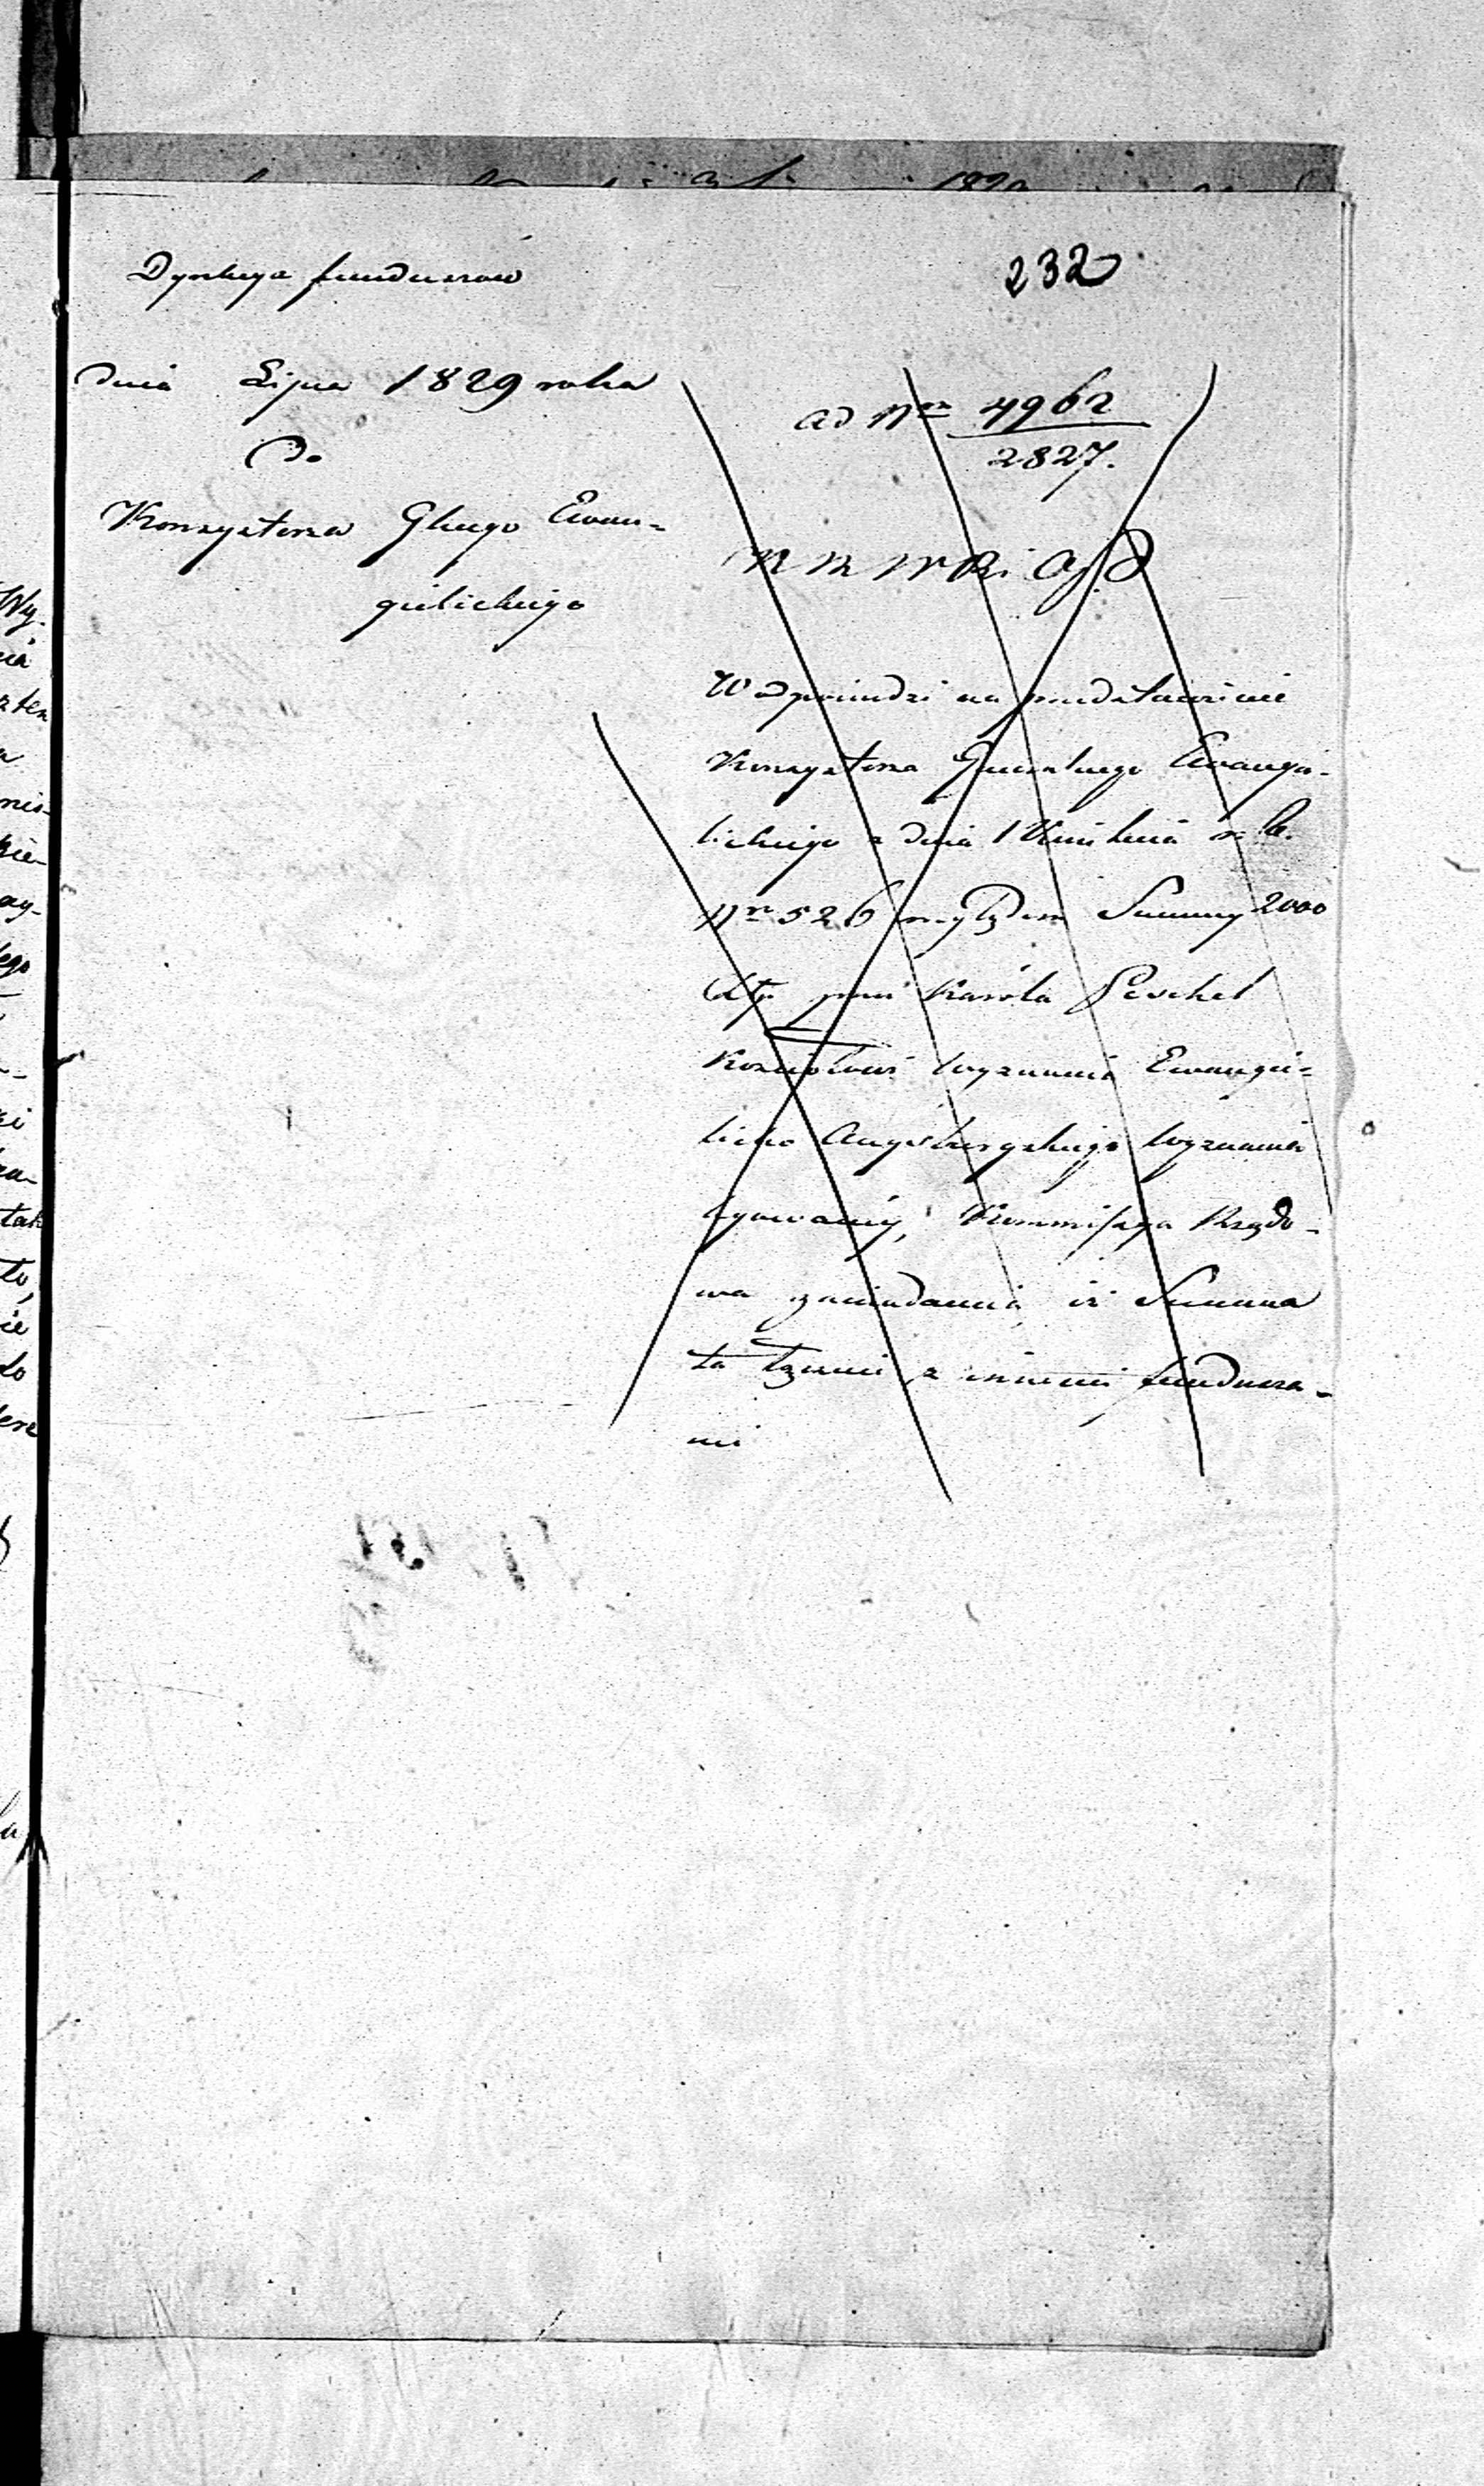 232
Dyrekcya funduszów
dnia Lipca 1829 roku
Do
Konsystorza Glnego Ewan-
gielickiego
ad Nrm 4962
2827.
W odpowiedzi na przedstawienie
Konsystorza Generalnego Ewangie-
lickiego z dnia 1 Kwietnia r. b.
Nr 526 względem Summy 2000
Złp przez Karola Peschel
Kościołowi wyznania Ewangie-
licko Augsburgskiego wyznania
legowanéy, Kommissya Rządo-
wa zawiadamia iż Summa
ta łącznie z innemi fundusza-
mi